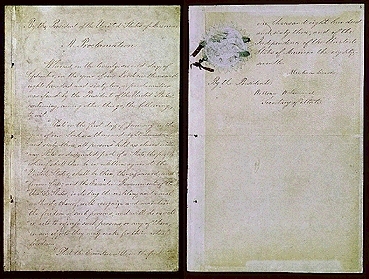 By the President of the United States of America:
A Proclamation.
Whereas, on the twenty-second day of
September, in the year of our Lord one thousand
eight hundred and sixty two, a proclamation
was issued by the President of the United States,
containing, among other things, the following,
to wit:
"That on the first day of January, in the
year of our Lord one thousand eight hundred
and sixty-three, all persons held as slaves within
any State or designated part of a State, the people
whereof shall then be in rebellion against the
United States, shall be then, thenceforward, and
forever free; and the Executive Government of the
United States, including the military and naval
authority thereof, will recognize and maintain
the freedom of such persons, and will do no act
or acts to repress such persons, or any of them,
in any efforts they may make for their actual
freedom.
"That the Executive will, on the first
one thousand eight hundred
and sixty three, and of the
Independence of the United
States of America the eighty-
seventh.
Abraham Lincoln
By the President:
William H. Seward
Secretary of State.